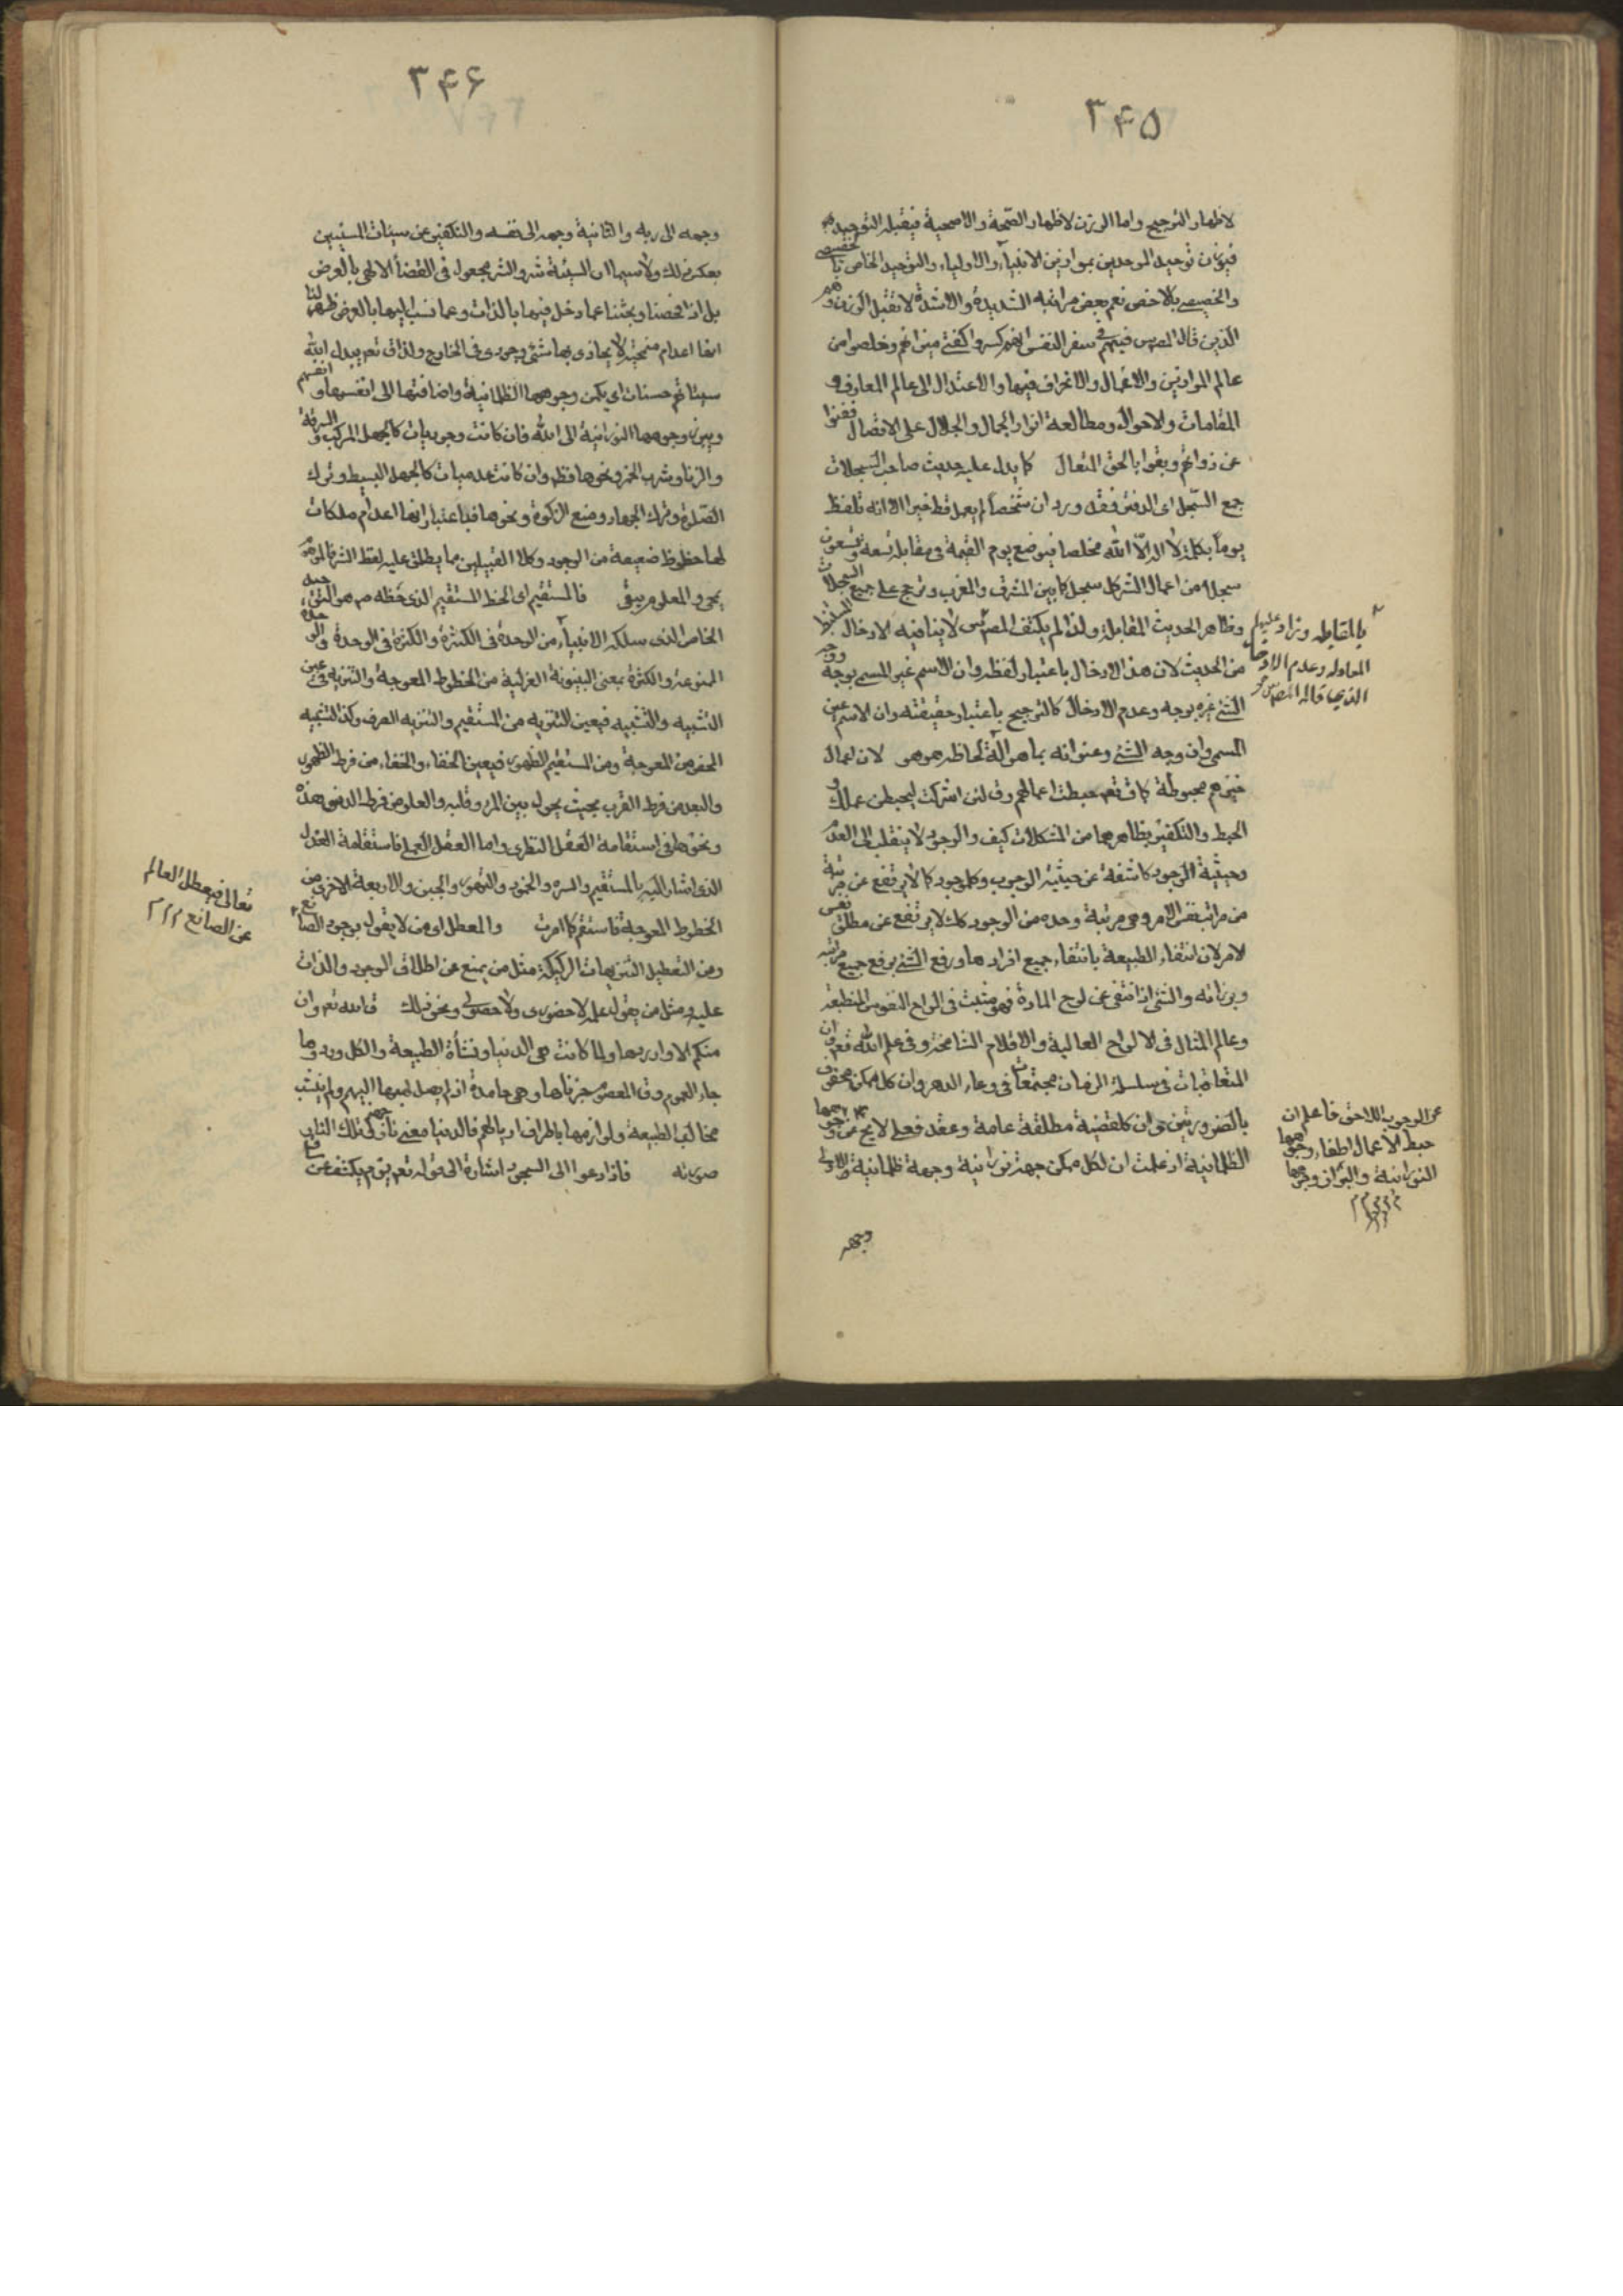 ۳۴۵
لاظهار الترجيح واما الوزن لاظهار الصحة والاصحية فيقبله التوحيد
فيوزن توحيد الموحدين بموازين الانبياء والاولياء والتوحيد الخاص بالخصيصى
والخصيصى بالاخص نعم بعض مراتبه الشديدة والاشدة لا تقبل الوزن وهم
الذين قال المصـ س فيهم فى سفر النفس انهم كسروا كفتى ميزانهم وخلصوا من
عالم الموازين والاعمال والانحراف فيها والاعتدال الى عالم المعارف و
المقامات والاحوال ومطالعة انوار الجمال والجلال على الاتصال ففنوا
عن ذواتهم وبقوا بالحق المتعال كما يدل عليه حديث صاحب السجلات
جمع السّجل اى الدفتر فقد ورد ان شخصا لم يعمل قط خيرا الا انه تلفظ
يوماً بكلمة لا اله الّا الله مخلصا فيوضع يوم القيمة فى مقابله تسعة وتسعون
سجلا من اعمال الشر كل سجل كما بين المشرق والمغرب وترجح على جميع السجلات
وظاهر الحديث المقابلة ولذا لم يكتف المصـ س لا ينافيه الادخال المستنبط
من الحديث لان هذا الادخال باعتبار لفظه وان الاسم غير المسمى بوجه ووجه
الشئ غيره بوجه وعدم الادخال كالترجيح باعتبار حقيقته وان الاسم عين
المسمى وان وجه الشئ وعنوانه بما هو آلة لحاظه هو هو لان اعمال
خيرهم محبوطة كما ق تعـ حبطت اعمالهم وق لئن اشركت ليحبطن عملك و
الحبط والتكفير بظاهرهما من المشكلات كيف والوجود لا ينقلب الى العدم
وحيثية الوجود كاشفة عن حيثية الوجوب وكل وجود كما لا يرتفع عن مرتبة
من مراتب نفس الامر وهى مرتبة وحده من الوجود كك لا يرتفع عن مطلق نفس
الامر لان انتفاء الطبيعة بانتفاء جميع افرادها ورفع الشئ برفع جميع مراتبه
وبرزاته والشئ اذا انتفى عن لوح المادة فهو مثبت فى الواح النفوس المنطبعة
وعالم المثال فى الالواح العالية والاقلام الشامخة وفى علم الله تعـ وان
المتعاقبات فى سلسلة الزمان مجتمعات فى وعاء الدهر وان كل ممكن محفوف
بالضرورتين وان كل قضية مطلقة عامة وعقد فعلى لا يخ
الظلمانية اذ علمت ان لكل ممكن جهة نورانية وجهة ظلمانية والاولى
وجهه
بالمقابلة وزاد عليهم
المعادله وعدم الادخال
الذى قاله المصـ س
عن الوجوب اللاحق فاعلم ان
حبط الاعمال اطفاء وجوهها
النورانية والتوازن وجوهها
۳۴۶
وجهه الى ربه والثانية وجهه الى نفسه والتكفير عن سيئات المسيئين
بعكس ذلك ولا سيما ان السيئة شر والشر مجعول فى القضاء الالهى بالعرض
بل اذا فحصنا وبحثنا عما دخل فيها بالذات وعما نسب اليها بالعرض ظهر لنا
انها اعدام منحتة لا يحاذى بها شئ وجودى فى الخارج ولذا ق تعـ يبدل الله
سيئاتهم حسنات اى يكمن وجوهها الظلمانية واضافتها الى انفسها وانفسهم
ويبرز وجوهها النورانية الى الله فان كانت وجوديات كالجهل المركب والسرقة
والزنا وشرب الخمر ونحوها فظ وان كانت عدميات كالجهل البسيط وترك
الصّلوة وترك الجهاد ومنع الزكوة ونحوها فباعتبار انها اعدام ملكات
لها حظوظ ضعيفة من الوجود وكلا القبيلين مما يطلق عليه لفظ الشر فالموهوم
يمحى والمعلوم يبقى فالمستقيم اى الخط المستقيم الذى خطه ص هو التوحيد
الخاص الذى سلكه الانبياء من الوحدة فى الكثرة والكثرة فى الوحدة والوحدة
الممنوعة والكثرة بمعنى البينونة العزلية من الخطوط المعوجة والتنزيه فى عين
التشبيه والتشبيه فى عين التنزيه من المستقيم والتنزيه الصرف وكذا التشبيه
المحض من المعوجة ومن المستقيم الظهور فى عين الخفاء والخفاء من فرط الظهور
والبعد من فرط القرب بحيث يحول بين المرء وقلبه والعلو من فرط الدنو هذه
ونحوها فى استقامة العقل النظرى واما العقل العملى فاستقامة العدل
الذى اشار اليه بالمستقيم والشره والخمود والتهور والجبن والاربعة الاخرى من
الخطوط المعوجة فاستقم كما امرت والمعطل اى من لا يقول بوجود الصانع
ومن التعطيل التنزيهات الركيكة مثل من يمنع عن اطلاق الوجود والذات
عليه ومثل من يقول علمه لا حضورى ولا حصولى ونحو ذلك ق الله تعـ وان
منكم الا واردها ولما كانت هى الدنيا ونشأة الطبيعة والكل وردوها
جاء العموم وق المعصوم جزناها وهى خامدة اذ لم يصل لهيبها اليهم ولم ينشب
مخالب الطبيعة ولوازمها باطراف اذيالهم فالدنيا مغبر نار جهنم فى تلك النار
صورته فاذا دعوا الى السجود اشارة الى قوله تعـ يوم يكشف عن ساق
تعالى فيعطل العالم
عن الصانع